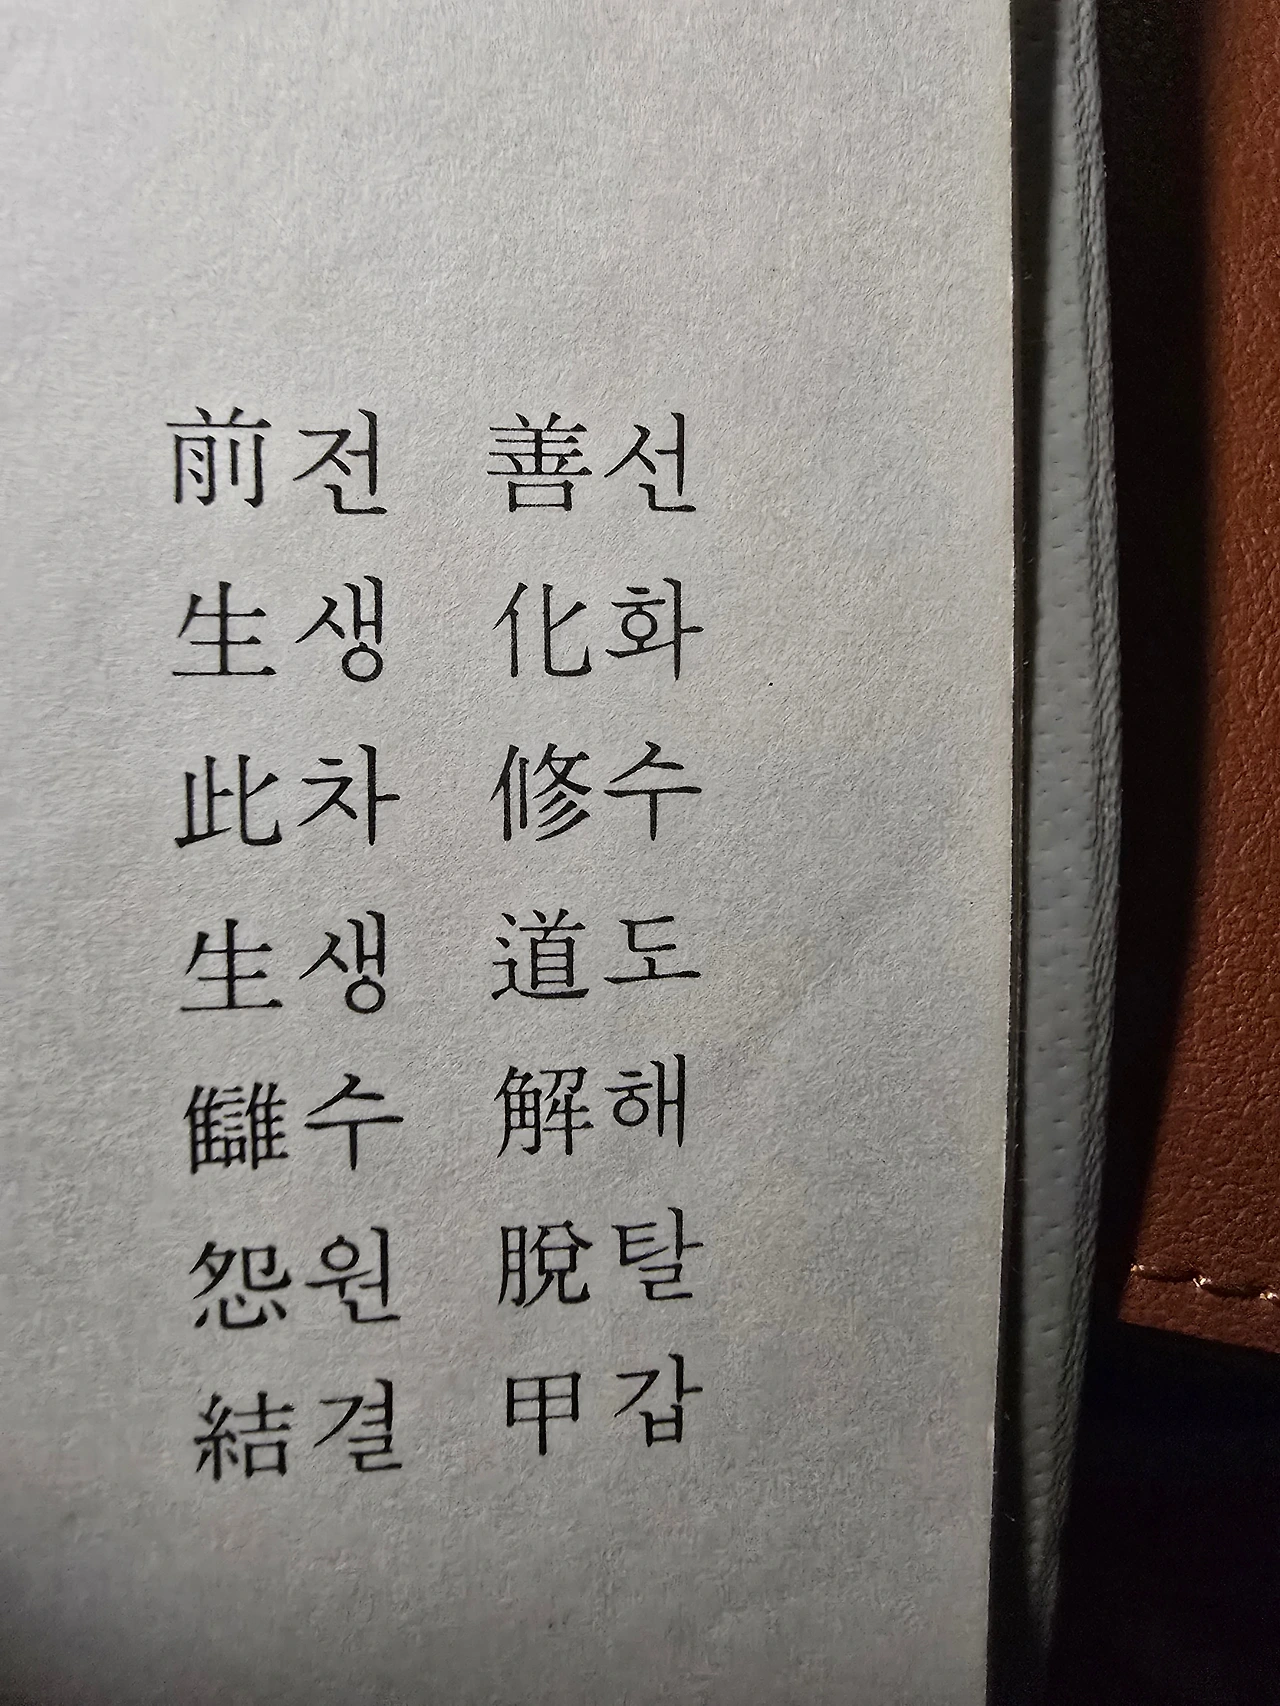 선화수도해탈갑
善化修道解脫甲
전생차생수원결
前生此生讎怨結